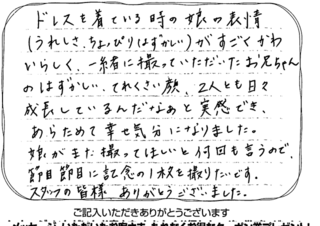 ドレスを着ている時の娘の表情
(うれしさ、ちょっぴりはずかしい)がすごくかわ
いらしく、一緒に撮っていただいたお兄ちゃん
のはずかしい、てれくさい顔、2人とも日々
成長しているんだなぁと実感でき、
あらためて幸せ気分になりました。
娘がまた撮ってほしいと何回も言うので、
節目節目に記念の1枚を撮りたいです。
スタッフの皆様、ありがとうございました。
ご記入いただきありがとうございます